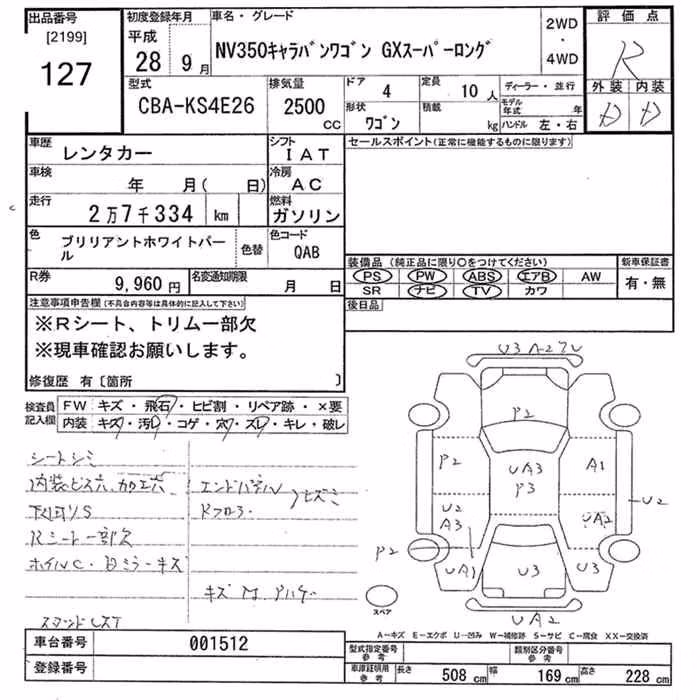 出品番号
[2199]
127
初度登録年月
平成
28年 9月
車名・グレード
NV350キャラバンワゴン GXスーパーロング
2WD
・
4WD
評価点
R
外装 内装
D D
型式
CBA-KS4E26
排気量
2500
CC
ドア
4
定員
10人
ディーラー・並行
形状
ワゴン
積載
kg
モデル年式 年
ハンドル 左・右
車歴
レンタカー
シフト
IAT
車検
年 月( 日)
冷房
AC
走行
2万7千334 km
燃料
ガソリン
色
ブリリアントホワイトパール
色替
色コード
QAB
R券
9,960円
名変通知期限
月 日
セールスポイント(正常に機能するものに限ります)
装備品 (純正品に限り○をつけてください)
PS PW ABS エアB AW
SR ナビ TV カワ
新車保証書
有・無
後日品
注意事項申告欄(不具合内容等は具体的に記入して下さい)
※Rシート、トリム一部欠
※現車確認お願いします。
修復歴 有〔箇所 〕
検査員記入欄
FW キズ・飛石・ヒビ割・リペア跡・×要
内装 キズ・汚レ・コゲ・穴・ズレ・キレ・破レ
シートシミ
内装ビス穴.加工穴
下回リS
Rシート一部欠
ホイルC・Dミラーキズ
エンドパネル
Rフロア・
ヒズミ
キズ
U3
P2
P2
UA3
P3
A1
U2
A3
UA2
U2
P2
UA1
U3
U3
UA2
スペア
A-キズ E-エクボ U-凹み W-補修跡 S-サビ C-腐食 XX-交換済
車台番号
001512
登録番号
型式指定番号
参考
類別区分番号
参考
車庫証明用
参考
長さ 508cm 幅 169cm 高さ 228cm